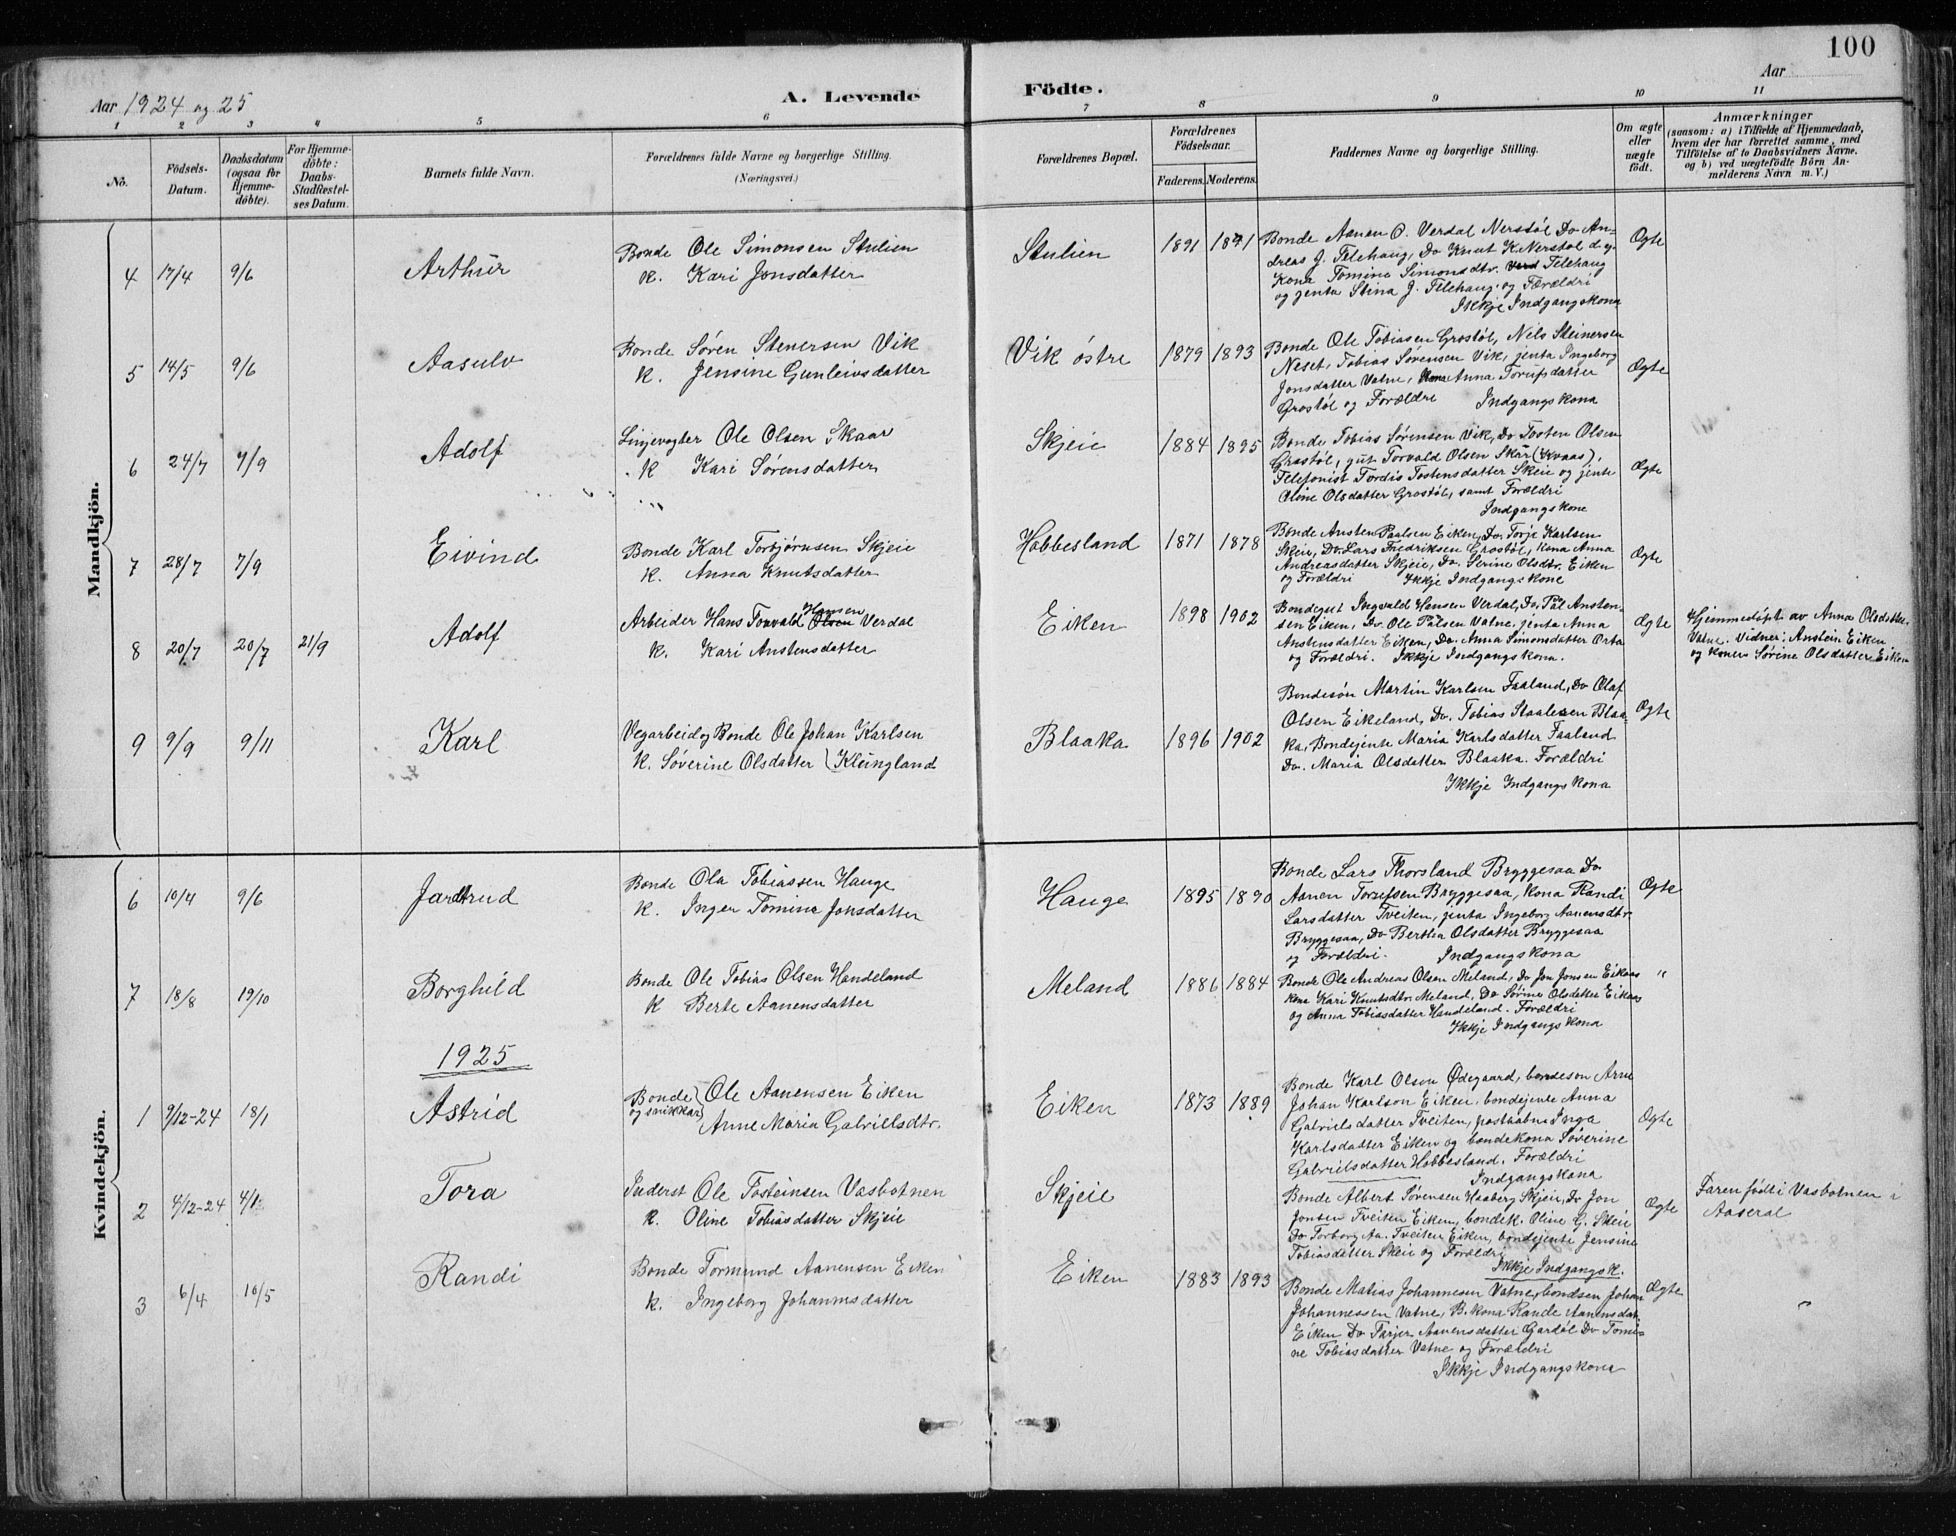 100
Aar 1924 og 25
A. Levende Födte.
Aar
1 2 3 4 5 6 7 8 9 10 11
No.
Födsels-Datum.
Daabsdatum (ogsaa for Hjemme-døbte).
For Hjemme-døbte: Daabs-Stadfestel-ses Datum.
Barnets fulde Navn.
Forældrenes fulde Navne og borgerlige Stilling.
(Næringsvei.)
Forældrenes Bopæl.
Forældrenes Födselsaar.
Faderens. Moderens.
Faddernes Navne og borgerlige Stilling.
Om ægte eller uægte födt.
Anmærkninger
(saasom: a) i Tilfælde af Hjemmedaab,
hvem der har forrettet samme, med
Tilföielse af to Daabsvidners Navne.
og b) ved uægtefödte Börn An-
melderens Navn m. V.)
Mandkjön.
4 17/4 9/6 Arthur
Bonde Ole Simonsen Stulien
k. Kari Jonsdatter
Stulien 1891 1891
Bonde Aanen O. Verdal Nerstøl Do An-
dreas J. Telehaug, Do Knut K. Nerstøl og
Kona Tomine Simonsdtr. Telehaug
og jenta Stina J. Telehaug og Forældri
Ikkje Indgangskona
Ogte
5 14/5 9/6 Aasulv
Bonde Søren Stenersen Vik
k. Jensine Gunleivsdatter
Vik østre 1879 1893
Bonde Ole Tobiasen Grostøl, Nels Steinersen
Neset, Tobias Sørensen Vik, jenta Ingeborg
Jonsdatter Vatne, Kona Anna Torufsdatter
Grostøl og Forældre Indgangskona
Ægte
6 24/7 7/9 Adolf
Linjevogter Ole Olsen Skaar
k Kari Sørensdatter
Skjeie 1884 1895
Bonde Tobias Sørensen Vik, Do Tosten Olsen
Grostøl, gut Torvald Olsen Skår (Kvaas),
Telefonist Tordis Tostensdatter Skeie og jente
Oline Olsdatter Grostøl, samt Forældri
Indgangskone
Ægte
7 28/7 7/9 Eivind
Bonde Karl Torbjørnsen Skjeie
k. Anna Knutsdatter
Hobbesland 1871 1878
Bonde Ansten Paalsen Eiken, Do. Torje Karlsen
Skeie, Do. Lars Fredriksen Grostøl, Kona Anna
Andreasdatter Skjeie, Do. Serine Olsdtr. Eiken
og Forældri Ikkje Indgangskone
Ægte
8 20/7 20/7 21/9 Adolf
Hansen
Arbeider Hans Torvald Olsen Verdal
k. Kari Anstensdatter
Eiken 1898 1902
Bondegut Ingvald Hansen Verdal, Do. Pål Ansten-
sen Eiken, Do. Ole Pålsen Vatne, jenta Anna
Anstensdatter Eiken, Do. Anna Simonsdatter Orta
og Forældri. Ikkje Indgangskona.
Ægte
Hjemmedøpt av Anna Olsdatter
Vatne. Vidner: Anstein Eiken
og konen Sørine Olsdatter Eiken
9 9/9 9/11 Karl
Vegarbeid og Bonde Ole Johan Karlsen
k. Søverine Olsdatter Kleingland
Blaaka 1896 1902
Bondesøn Martin Karlsen Faaland, Do Olaf
Olsen Eikeland, Do. Tobias Staalesen Blaa-
ka, Bondejente Maria Karlsdatter Faaland
Do. Maria Olsdatter Blaaka. Forældri
Ikkje Indgangskona
Ægte
Kvindekjön.
6 10/4 9/6 Jardtrud
Bonde Ola Tobiassen Hauge
k. Inger Tomine Jonsdatter
Hauge 1895 1890
Bonde Lars Thorsland Bryggesaa Do
Aanen Torufsen Bryggesaa, kona Randi
Larsdatter Tveiten, jenta Ingeborg Aanensdtr.
Bryggesaa, Do Bertha Olsdatter Bryggesaa
og Forældri. Indgangskona
Ægte
7 18/8 19/10 Borghild
Bonde Ole Tobias Olsen Handeland
k Berte Aanensdatter
Meland 1886 1884
Bonde Ole Andreas Olsen Meland, Do Jon Jonsen Eikaas
kona Kari Knutsdtr. Meland, Do Sørine Olsdatter Eikaas
og Anna Tobiasdatter Handeland. Forældri
Ikkje Indgangskona
"
1925
1 9/12-24 18/1 Astrid
Bonde og snikkar Ole Aanensen Eiken
Anne Maria Gabrielsdtr.
Eiken 1873 1889
Bonde Karl Olson Ødegaard, bondeson Arne
Johan Karlson Eiken, bondejente Anna
Gabrielsdatter Tveiten, postaabne Inga
Karlsdatter Eiken og bondekona Søverine
Gabrielsdatter Hobbesland. Forældri
Indgangskona
Ægte
2 4/12-24 4/1 Tora
Inderst Ole Tosteinsen Vasbotnen
k. Oline Tobiasdatter Skjeie
Skjeie
Bonde Albert Sørensen Haaberg Skjeie, Do Jon
Jonsen Tveiten Eiken, bondek. Oline G. Skeie
Do Torborg Aa. Tveiten Eiken, bondejente Jensine
Tobiasdatter Skeie og Forældre
Ikkje Indgangsk.
Ægte
Faren født i Vasbotnen i
Aaseral
3 6/4 10/5 Randi
Bonde Tormund Aanensen Eiken
k. Ingeborg Johannsdatter
Eiken 1883 1893
Bonde Matias Johannesen Vatne, bondsøn Johan
Johannessen Vatne, B. kona Rande Aanensdat.
Eiken Do Tarjer Aanensdatter Gardøl Do Tomi-
ne Tobiasdatter Vatne og Forældri
Ikkje Indgangskona
Ægte